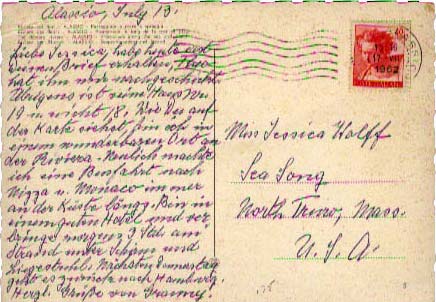 Alassio, July 13.
Liebe Jessica, habe heute erst
Deinen Brief erhalten,
hat ihn mir nachgeschickt.
Übrigens ist seine Haus No
19 u. nicht 18. Wie Du auf
der Karte siehst, bin ich in
einem wunderbaren Ort an
der Riviera. Neulich machte
ich eine Busfahrt nach
Nizza u. Monaco immer
an der Küste längs. Bin in
einem guten Hotel und ver
bringe morgens 3 Std. am
Strand unter Schirm und
Liegestuhl. Nächsten Donnerstag
geht es zurück nach Hamburg.
Herzl. Grüße von
Miss Jessica Wolff
Sea Song
North Truro, Mass.
U.S.A.
1962